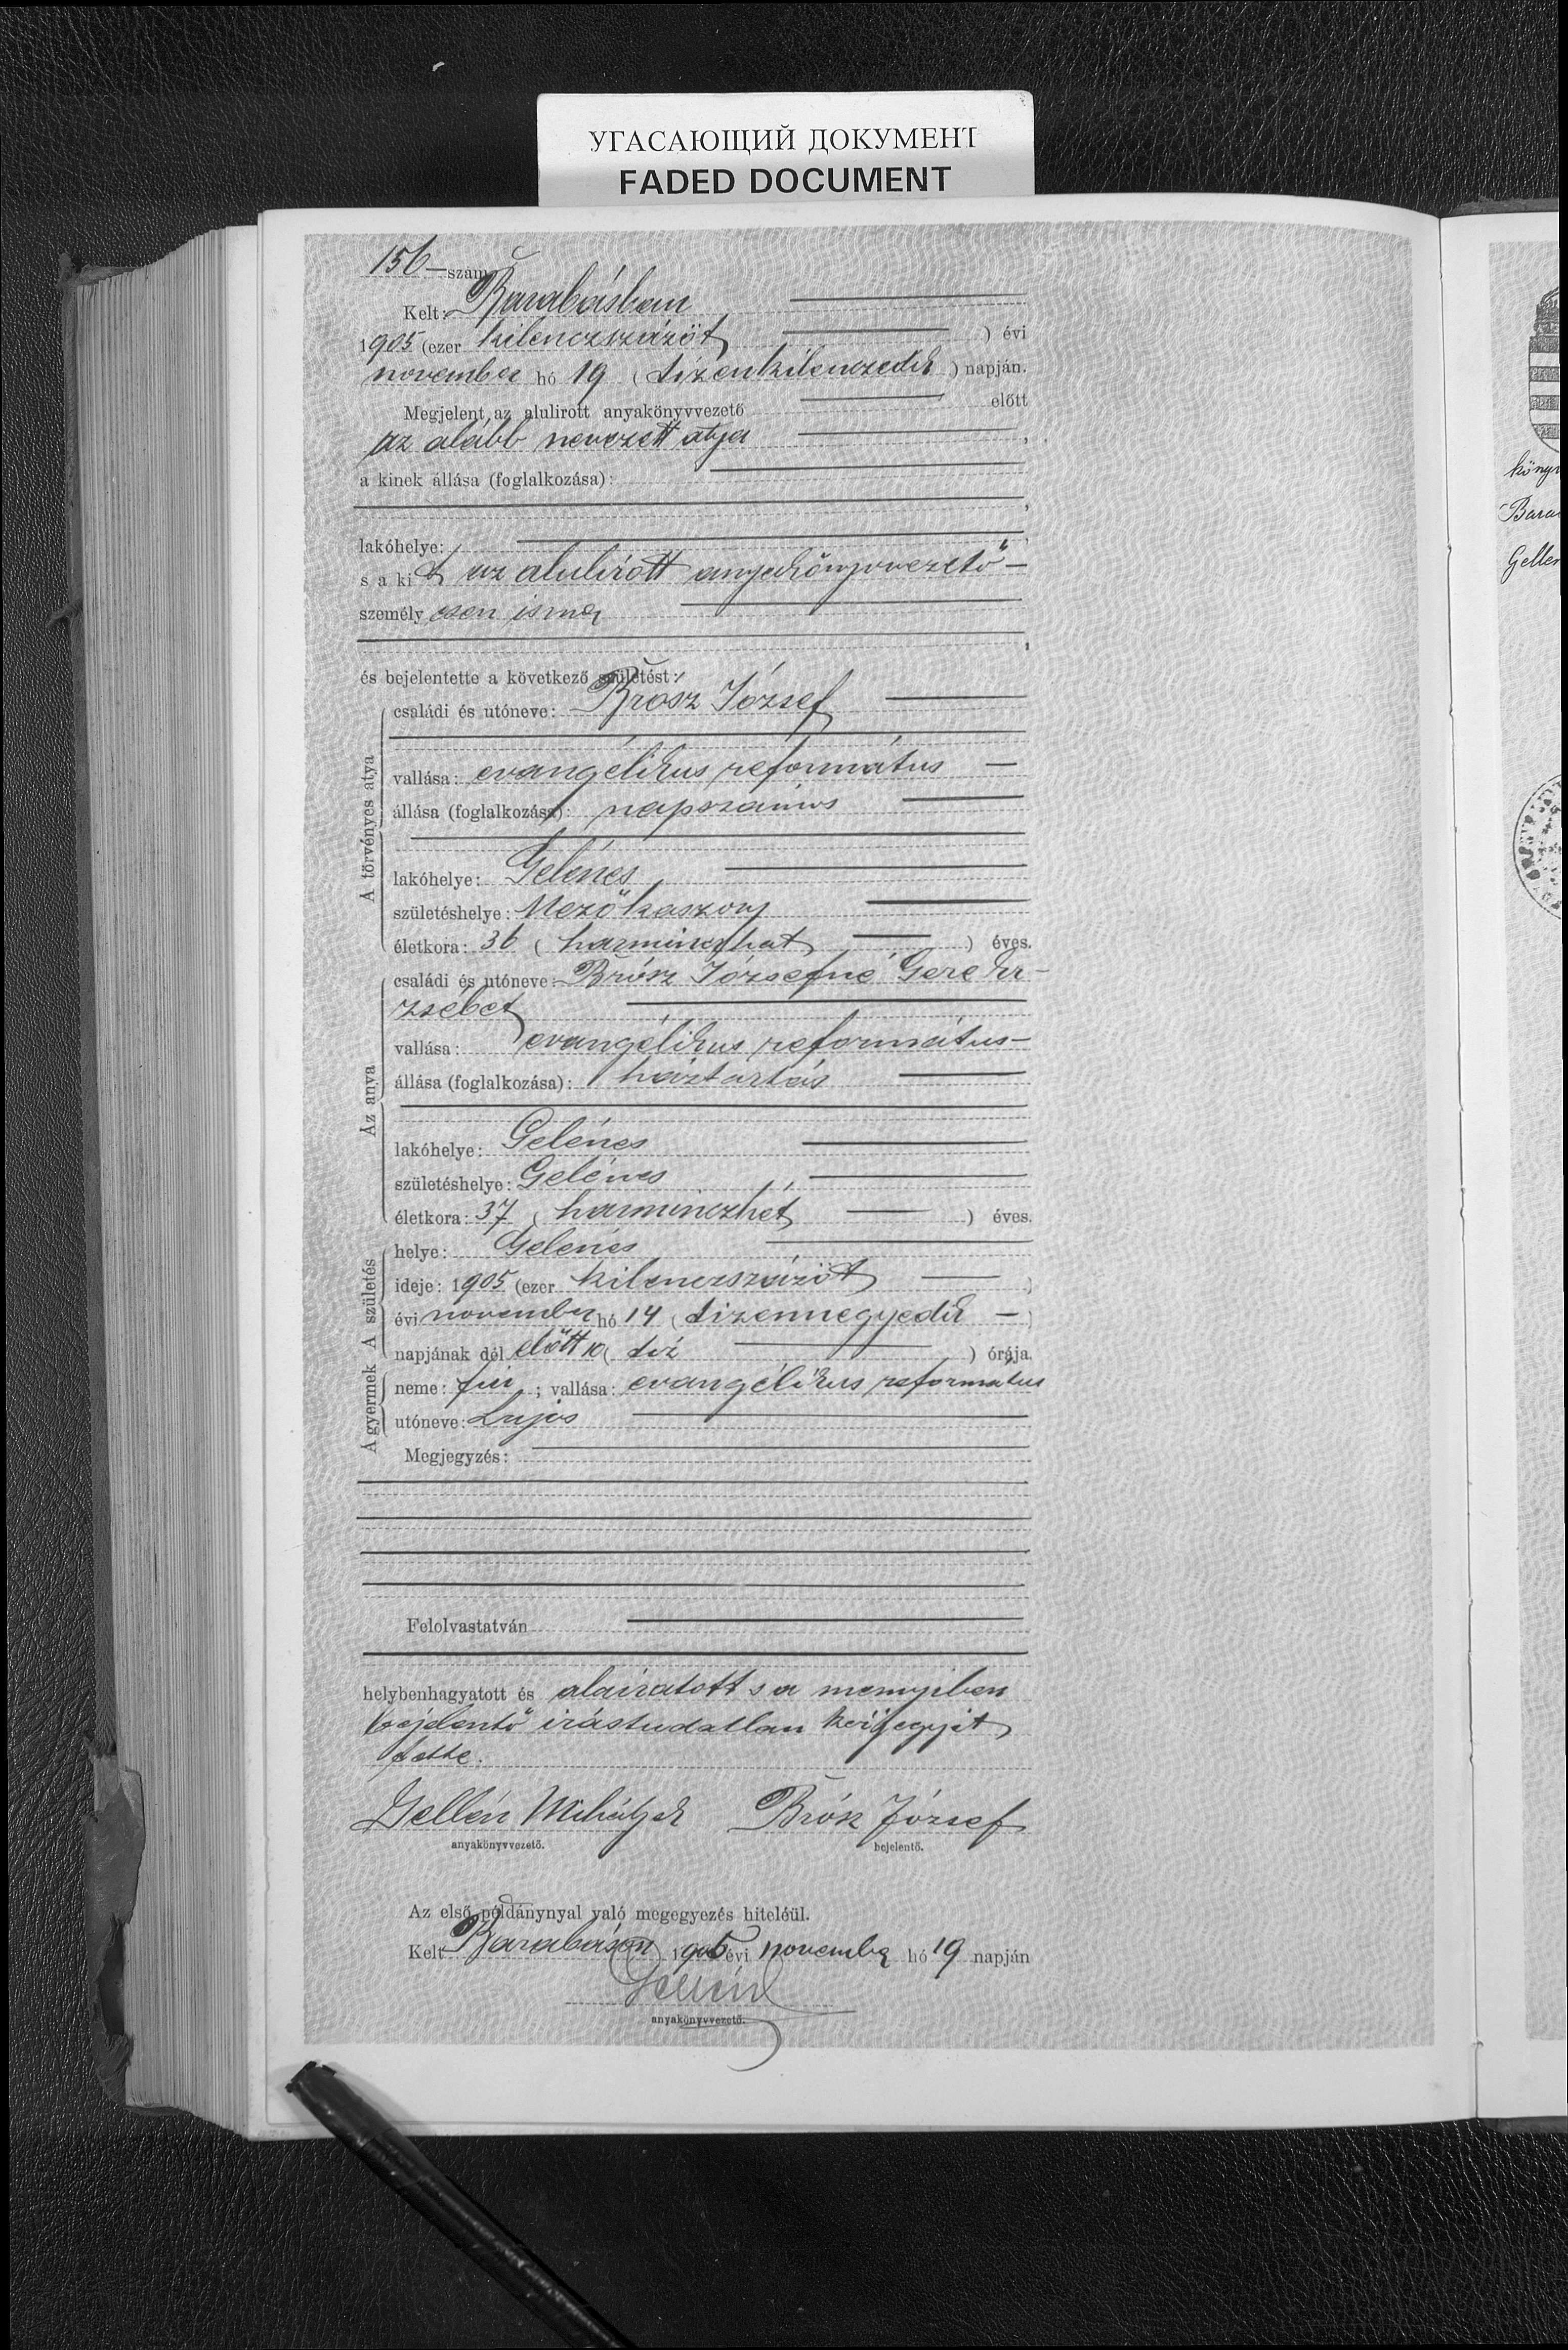 УГАСАЮЩИЙ ДОКУМЕНТ
FADED DOCUMENT
156 — szám
Kelt: Barabásban
1905 (ezer kilenczszázöt ) évi
november hó 19 ( tizenkilenczedik ) napján.
Megjelent az alulirott anyakönyvvezető előtt
az alább nevezett atya ,
a kinek állása (foglalkozása):
,
lakóhelye: ,
s a kit az alulírott anyakönyvvezető —
személy esen ismer
,
és bejelentette a következő születést:
A törvényes atya
családi és utóneve: Brósz József
vallása: evangélikus református —
állása (foglalkozása): napszámos
lakóhelye: Gelénes
születéshelye: Mezőkaszony
életkora: 36 ( harminczhat ) éves.
Az anya
családi és utóneve: Brósz Józsefné Gere Er-
zsébet
vallása: evangélikus református —
állása (foglalkozása): háztartás
lakóhelye: Gelénes
születéshelye: Gelénes
életkora: 37 ( harminczhét ) éves.
A születés
helye: Gelénes
ideje: 1905 (ezer kilenczszázöt )
évi november hó 14 ( tizennegyedik — )
napjának dél előtt 10 ( tíz ) órája.
A gyermek
neme: fiú ; vallása: evangélikus református
utóneve: Lajos
Megjegyzés:
Felolvastatván
helybenhagyatott és aláíratott s a mennyiben
bejelentő irástudatlan kézjegyét
tette.
Gellén Mihály Brósz József
anyakönyvvezető. bejelentő.
Az első példánynyal való megegyezés hiteléül.
Kelt Barabáson 1905 évi november hó 19 napján
Gellén
anyakönyvvezető.
köny
Bara
Gellé